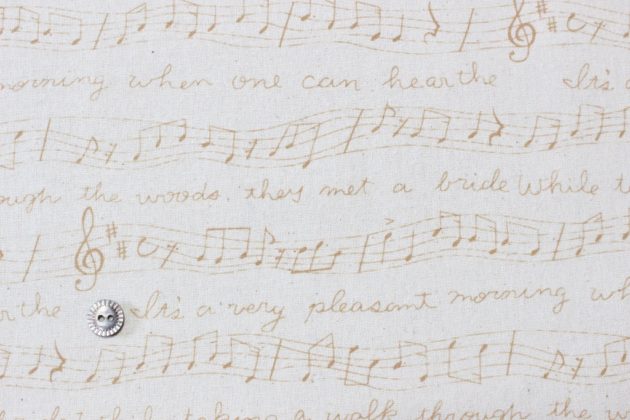 morning when one can hear the It's
through the woods. they met a bride While
the It's a very pleasant morning
while taking a walk through the